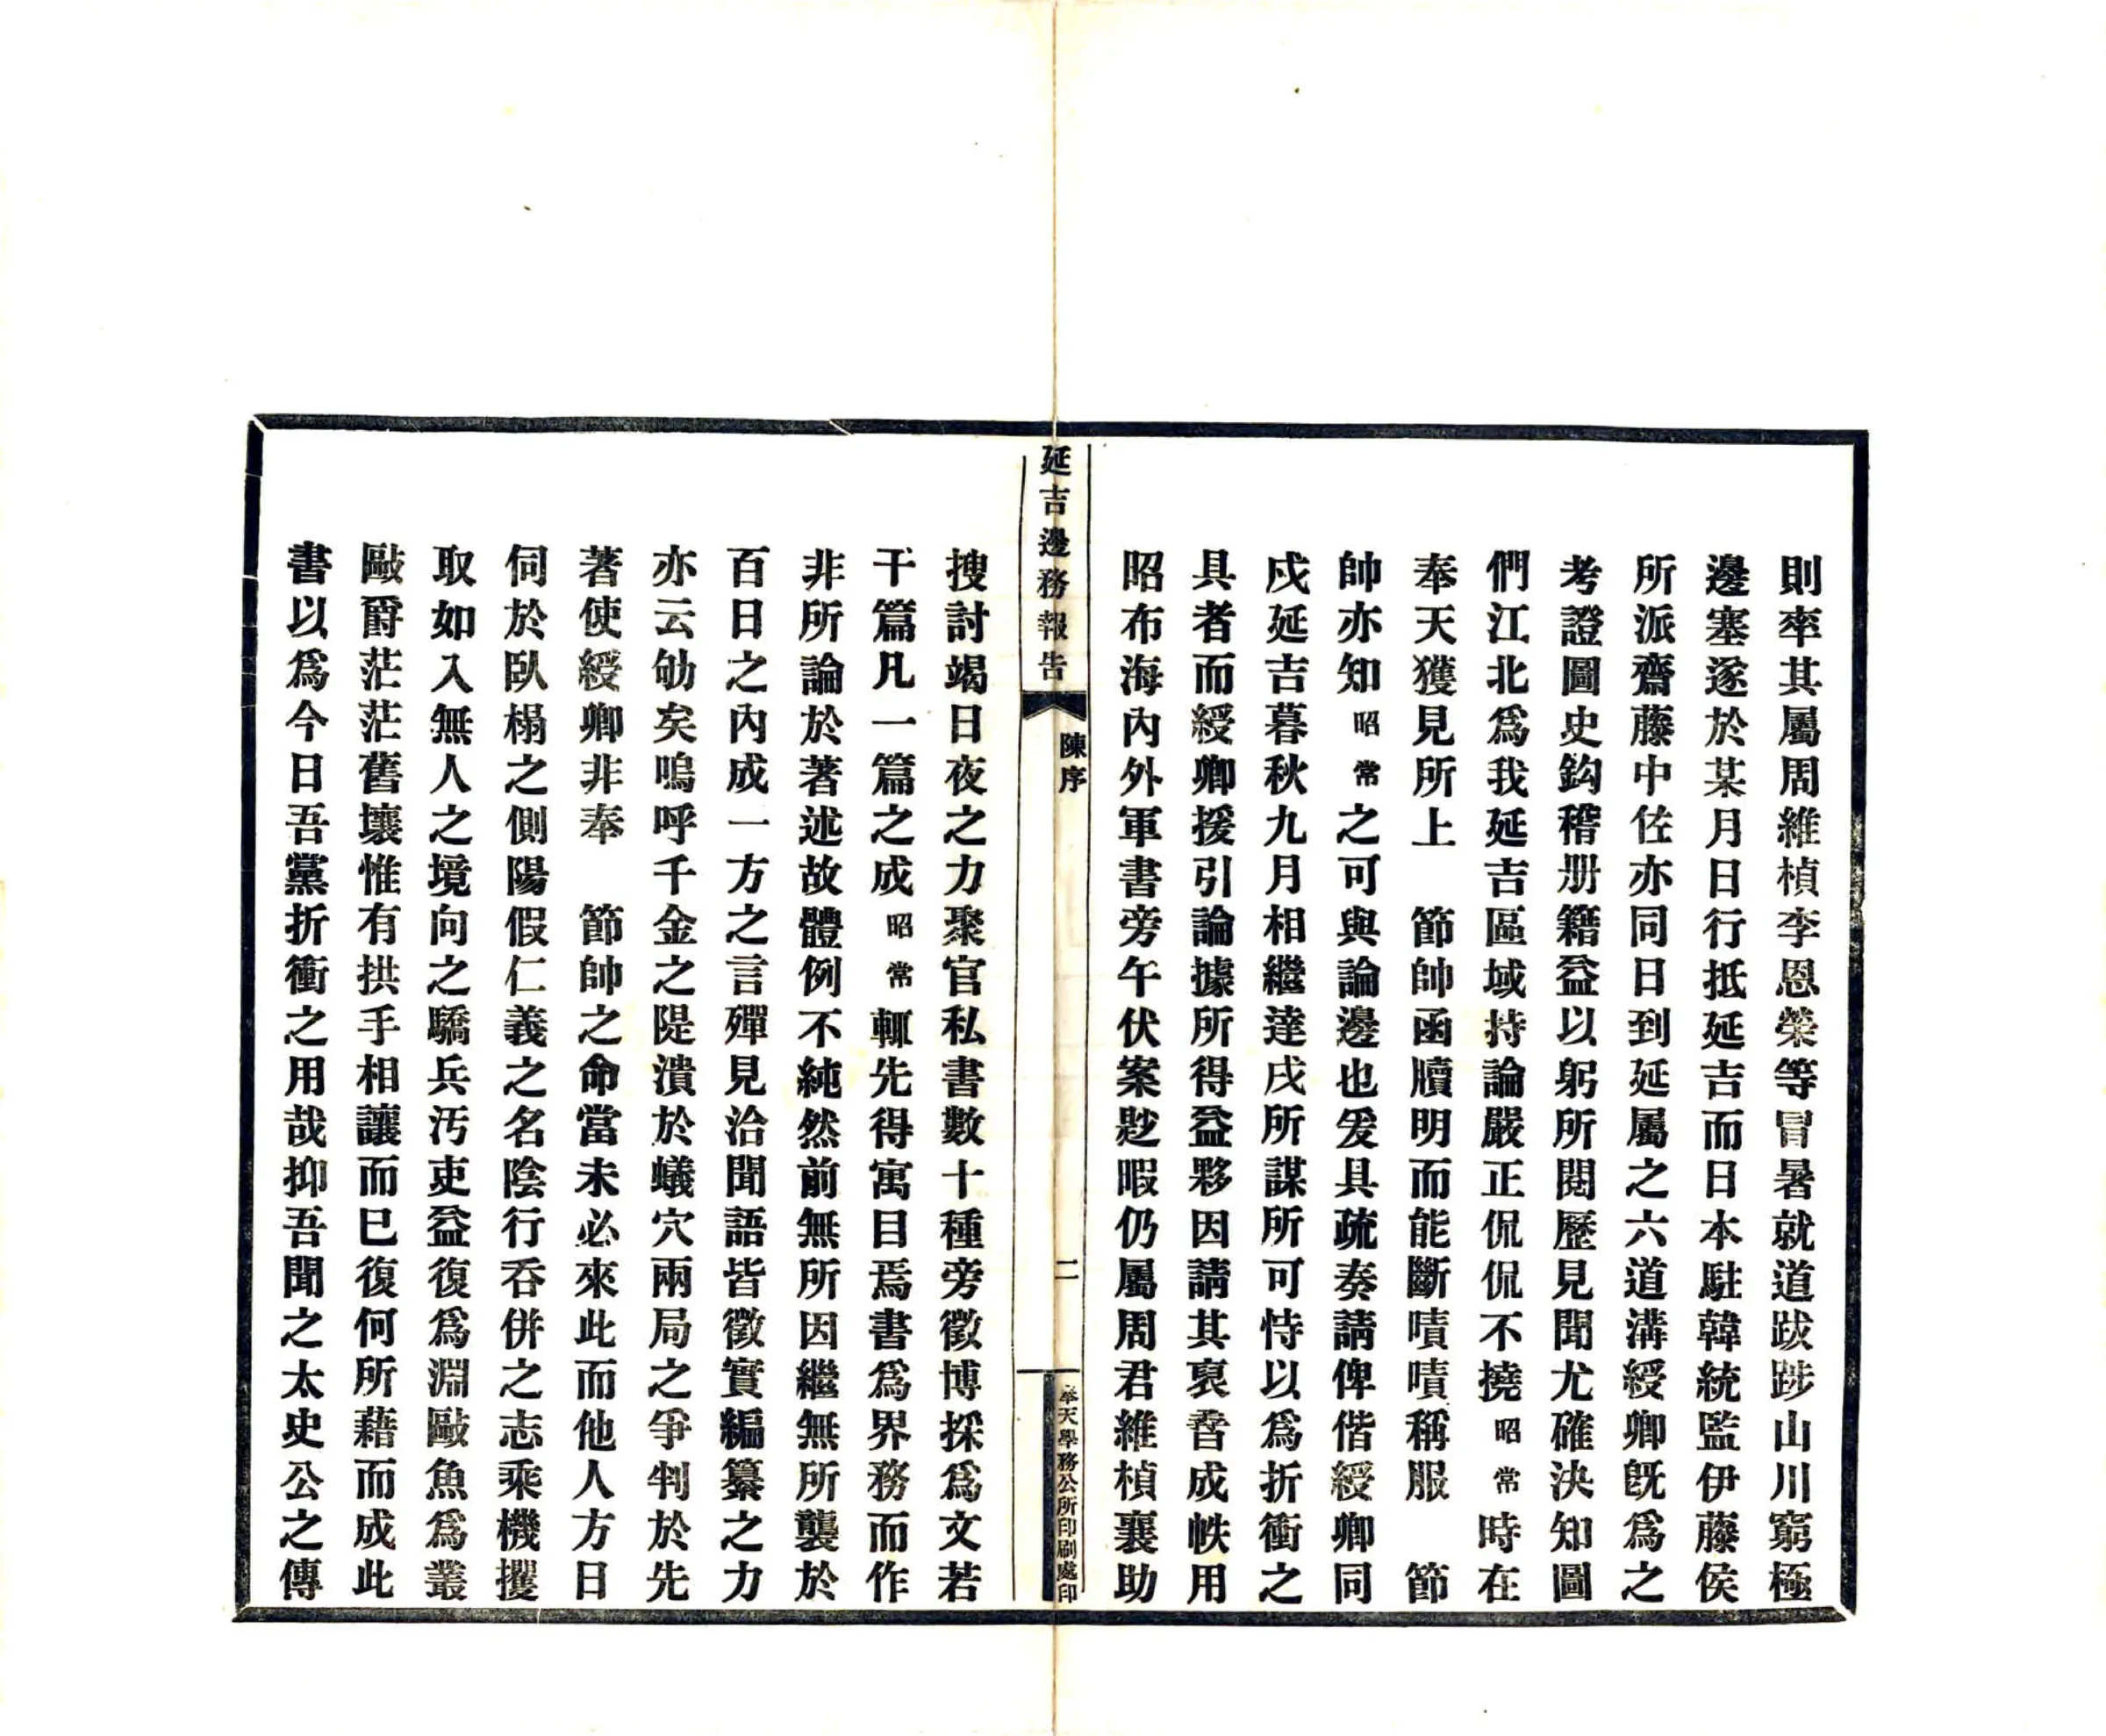 則率其屬周維楨李恩榮等冒暑就道跋踄山川窮極
邊塞遂於某月日行抵延吉而日本駐韓統監伊藤侯
所派齋藤中佐亦同日到延屬之六道溝綬卿旣爲之
考證圖史鈎稽册籍益以躬所閱歷見聞尤確決知圖
們江北爲我延吉區域持論嚴正侃侃不撓昭常時在
奉天獲見所上　節帥函牘明而能斷嘖嘖稱服　節
帥亦知昭常之可與論邊也爰具疏奏請俾偕綬卿同
戍延吉暮秋九月相繼達戍所謀所可恃以爲折衝之
具者而綬卿援引論據所得益夥因請其裒沓成帙用
昭布海內外軍書旁午伏案尠暇仍屬周君維楨襄助
延吉邊務報告
陳序
二
奉天學務公所印刷處印
搜討竭日夜之力聚官私書數十種旁徵博採爲文若
干篇凡一篇之成昭常輒先得寓目焉書爲界務而作
非所論於著述故體例不純然前無所因繼無所襲於
百日之內成一方之言殫見洽聞語皆徵實編纂之力
亦云劬矣嗚呼千金之隄潰於蟻穴兩局之爭判於先
著使綬卿非奉　節帥之命當未必來此而他人方日
伺於臥榻之側陽假仁義之名陰行吞併之志乘機攫
取如入無人之境向之驕兵汚吏益復爲淵敺魚爲叢
敺爵茫茫舊壤惟有拱手相讓而已復何所藉而成此
書以爲今日吾黨折衝之用哉抑吾聞之太史公之傳